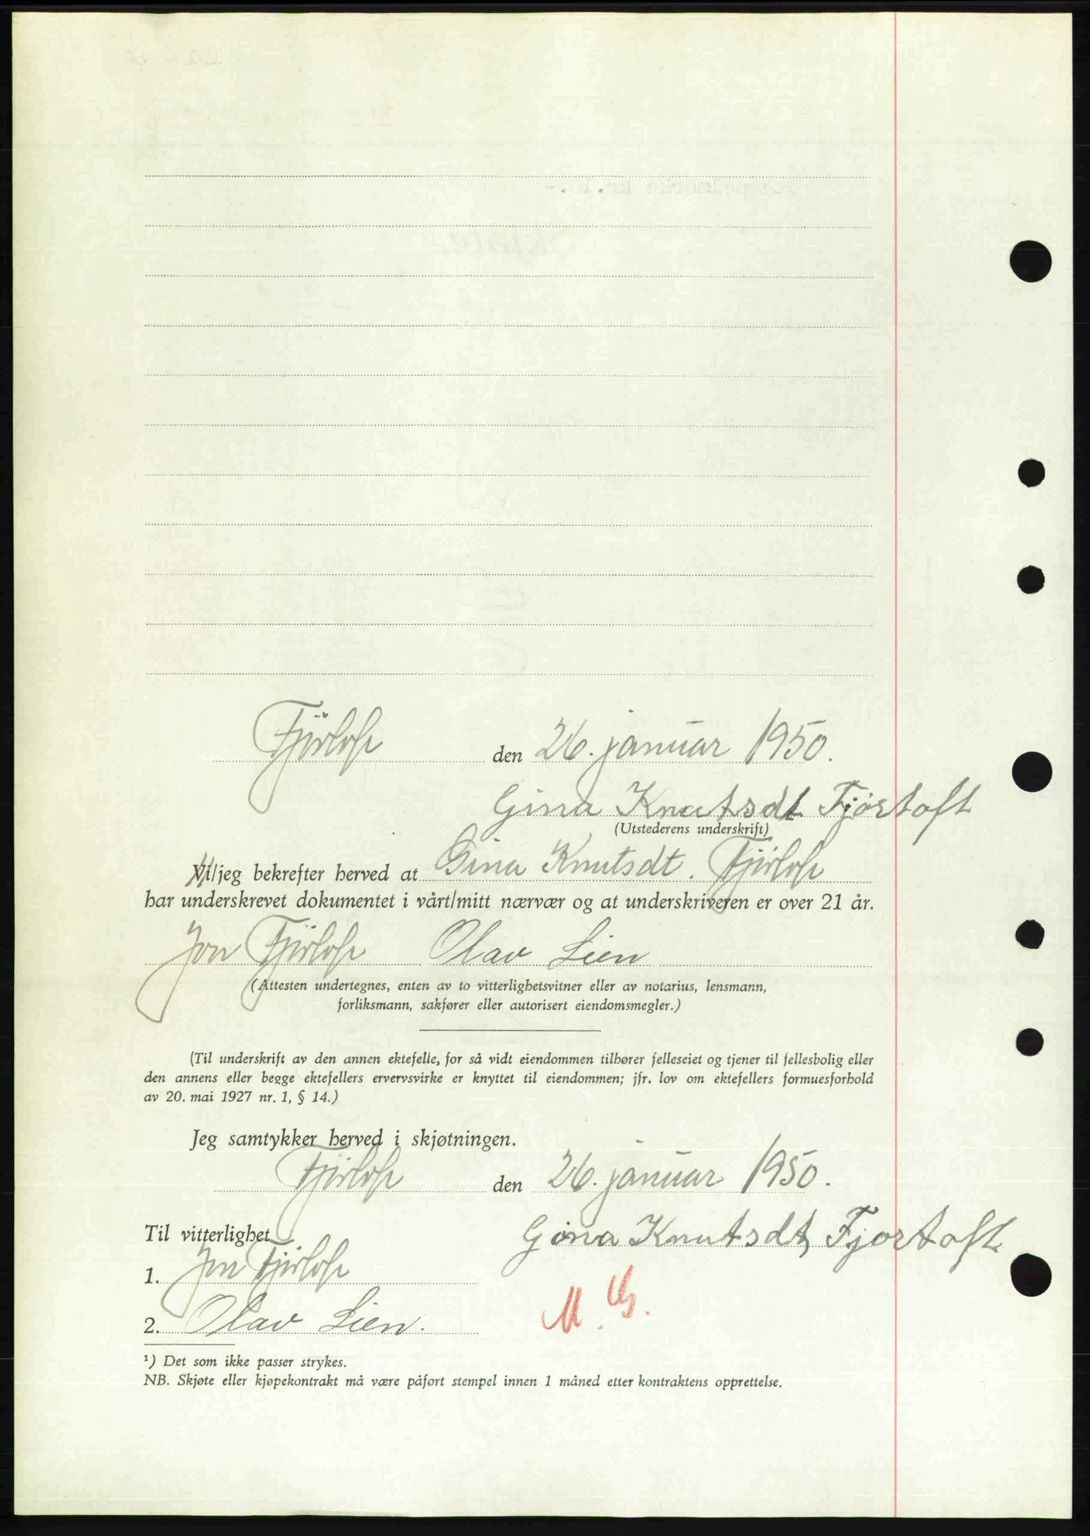 Fjörtoft den 26. januar 1950.
Gina Knutsdt Fjørtoft
(Utstederens underskrift)
Vi/jeg bekrefter herved at Gina Knutsdt. Fjörtoft
har underskrevet dokumentet i vårt/mitt nærvær og at underskriveren er over 21 år.
Jon Fjörtoft Olav Lien
(Attesten undertegnes, enten av to vitterlighetsvitner eller av notarius, lensmann,
forliksmann, sakfører eller autorisert eiendomsmegler.)
(Til underskrift av den annen ektefelle, for så vidt eiendommen tilhører felleseiet og tjener til fellesbolig eller
den annens eller begge ektefellers ervervsvirke er knyttet til eiendommen; jfr. lov om ektefellers formuesforhold
av 20. mai 1927 nr. 1, § 14.)
Jeg samtykker herved i skjøtningen.
Fjörtoft den 26. januar 1950.
Til vitterlighet Gina Knutsdt, Fjørtoft
1. Jon Fjörtoft
2. Olav Lien.
¹) Det som ikke passer strykes.
NB. Skjøte eller kjøpekontrakt må være påført stempel innen 1 måned etter kontraktens opprettelse.